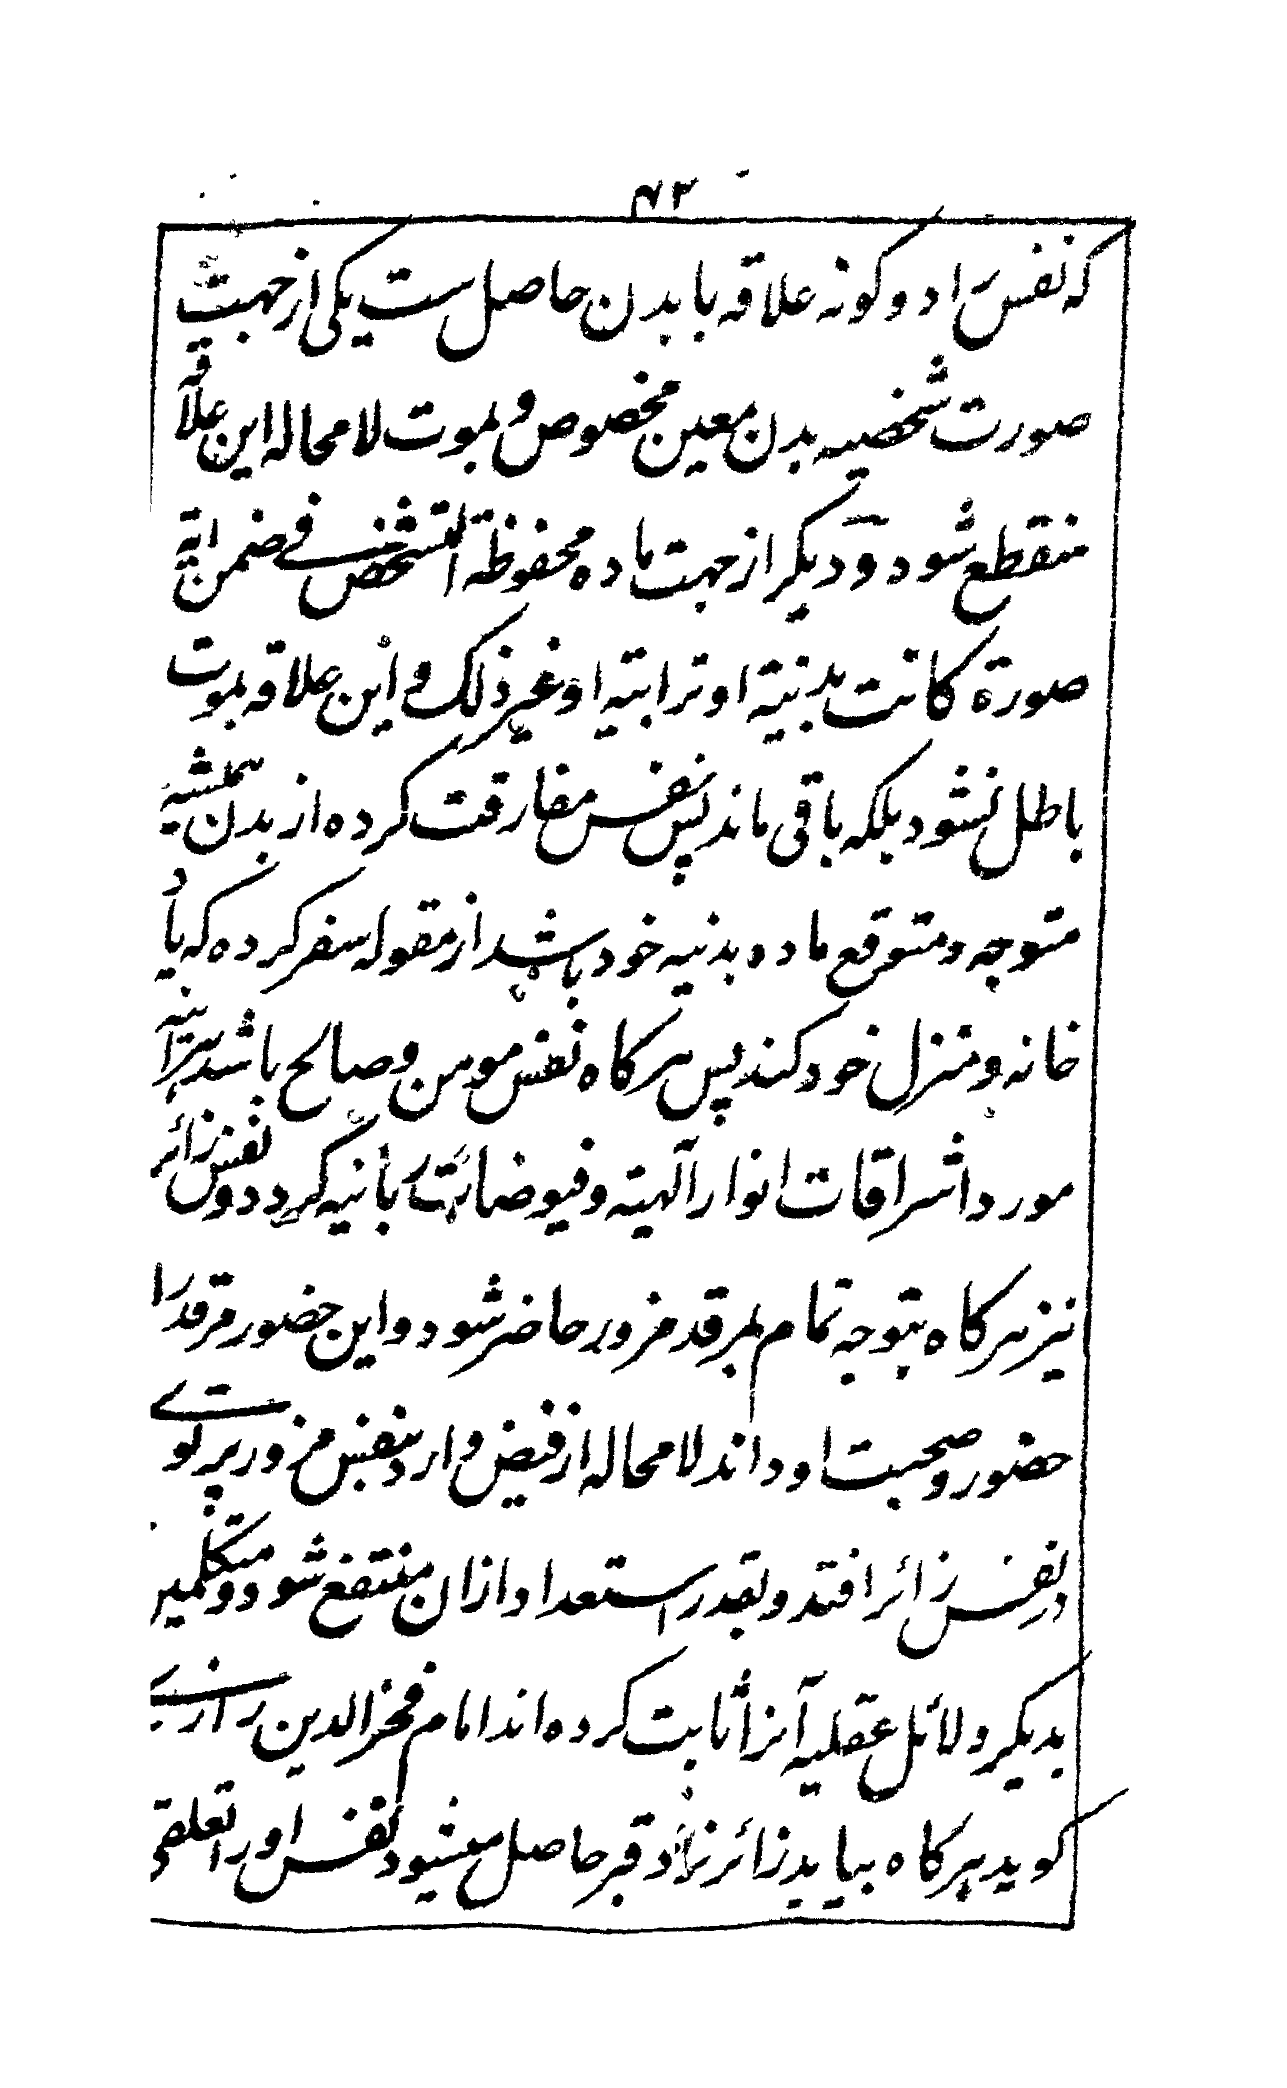 ۷۳
که نفس را دو کونه علاقه با بدن حاصل ست یکی از جهت
صورت شخصیه بدن معین مخصوص و بموت لا محاله این علاقه
منقطع شود و دیکر از جهت ماده محفوظة التشخص فے ضمن ایة
صورة کانت بدنیة او ترابیة او غیر ذلک و این علاقه بموت
باطل نشود بلکه باقی ماند پس نفس مفارقت کرده از بدن همیشه
متوجه و متوقع ماده بدنیه خود باشد از مقوله سفر کرده که یاد
خانه و منزل خود کند پس هرکاه نفس مومن و صالح باشد هرآئینه
مورد اشراقات انوار آلهیة و فیوضات ربانیه کردد و نفس زائر
نیز هرکاه بتوجه تمام بمرقد مزور حاضر شود و این حضور مرقد را
حضور و صحبت او داند لا محاله از فیض وارد بنفس مزور پرتوے
در نفس زائر افتد و بقدر استعداد ازان منتفع شود و متکلمین
بدیکر دلائل عقلیه آنرا ثابت کرده اند امام فخر الدین رازے
کوید هرکاه بیاید زائر نزد قبر حاصل میشود نفس او را تعلقی